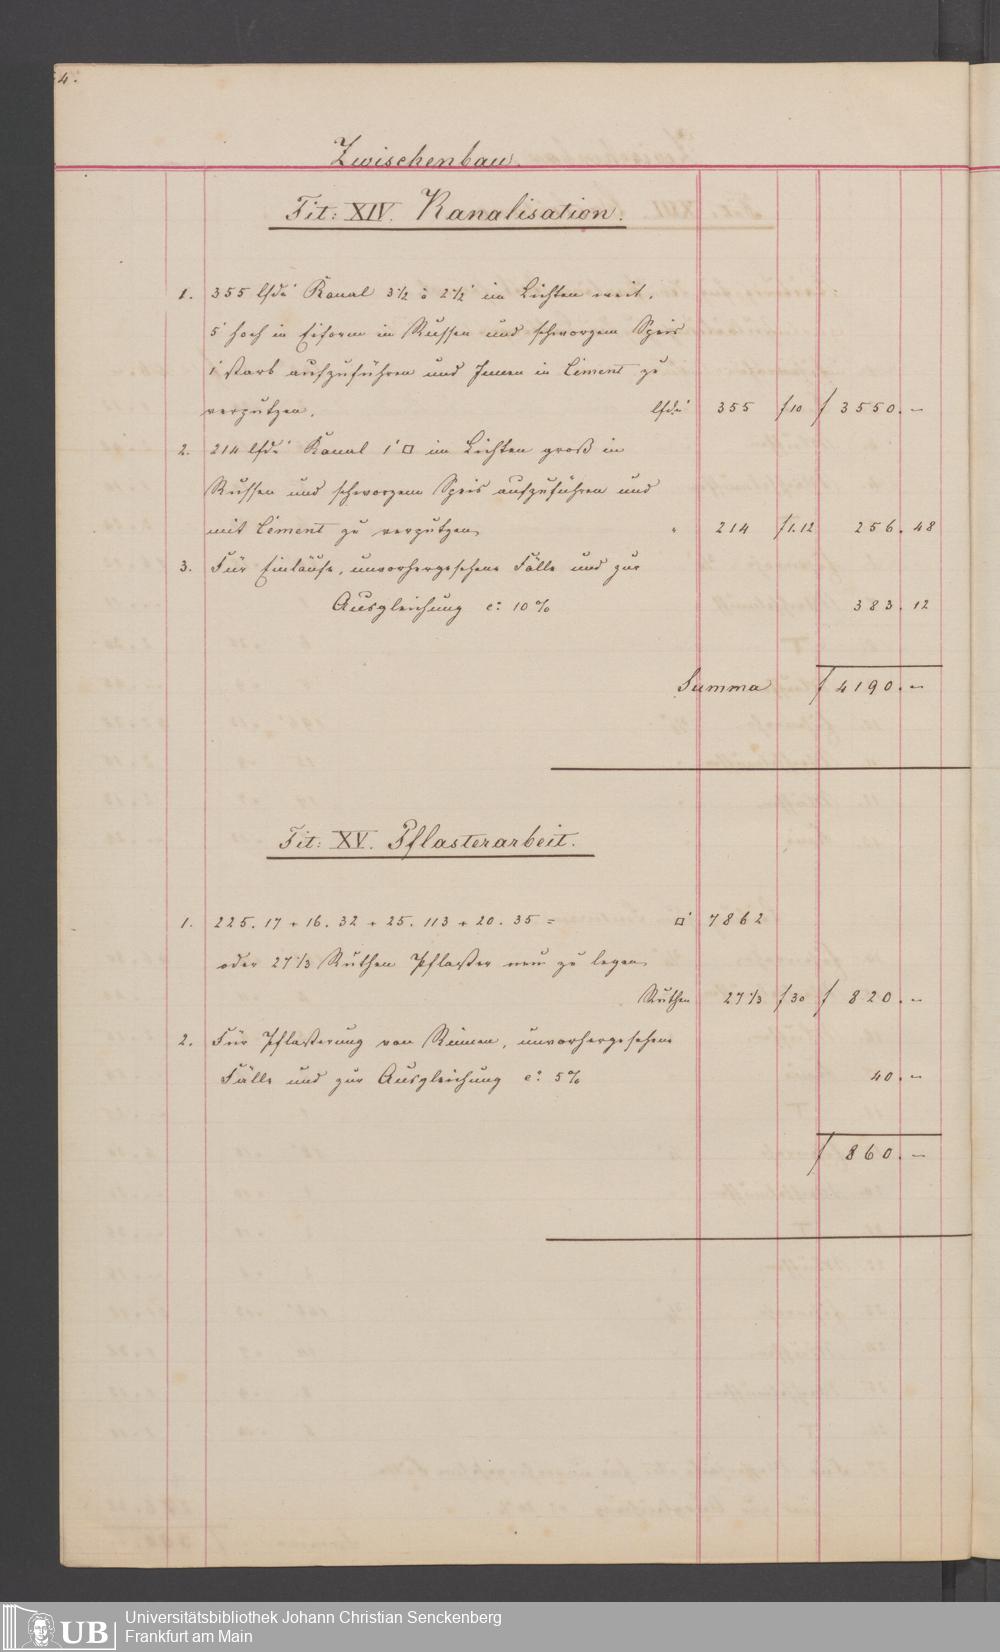 4.
Zwischenbau.
Tit: XIV. Kanalisation.
1. 355 lfde' Kanal 3½ à 2½' im Lichten weit,
5' hoch in Eiform in Russen und schwarzem Speis
1' stark aufzuführen und Innen in Cement zu
verputzen. lfde' 355 f 10 f 3550.–
2. 214 lfde' Kanal 1'□ im Lichten groß in
Russen und schwarzem Speis aufzuführen und
mit Cement zu verputzen " 214 f 1.12 256.48
3. Für Einläufe, unvorhergesehene Fälle und zur
Ausgleichung c: 10% 383.12
Summa f 4190.–
Tit: XV. Pflasterarbeit.
1. 225.17 + 16.32 + 25.113 + 20.35 = □' 7862
oder 27⅓ Ruthen Pflaster neu zu legen
Ruthen 27⅓ f 30 f 820.–
2. Für Pflasterung von Rinnen, unvorhergesehene
Fälle und zur Ausgleichung c: 5% 40.–
f 860.–
UB
Universitätsbibliothek Johann Christian Senckenberg
Frankfurt am Main